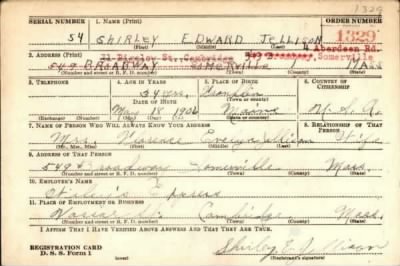 1329
SERIAL NUMBER 1. NAME (Print) ORDER NUMBER
54 SHIRLEY EDWARD JELLISON 1329
(First) (Middle) (Last)
31 Bigelow St., Cambridge 4 Aberdeen Rd.
2. ADDRESS (Print) Somerville
549 BROADWAY SOMERVILLE MASS
(Number and street or R. F. D. number) (Town) (County) (State)
3. TELEPHONE 4. AGE IN YEARS 5. PLACE OF BIRTH 6. COUNTRY OF CITIZENSHIP
34 yrs.
DATE OF BIRTH (Town or county)
May Maine U. S. A.
(Exchange) (No.) (Mo.) (Day) (Yr.) (State or country)
7. NAME OF PERSON WHO WILL ALWAYS KNOW YOUR ADDRESS 8. RELATIONSHIP OF THAT PERSON
Mrs. Florence Jellison Wife
(Mr., Mrs., Miss) (First) (Middle) (Last)
9. ADDRESS OF THAT PERSON
549 Broadway Somerville Mass.
(Number and street or R. F. D. number) (Town) (County) (State)
10. EMPLOYER'S NAME
Express
11. PLACE OF EMPLOYMENT OR BUSINESS
Cambridge Mass.
(Number and street or R. F. D. number) (Town) (County) (State)
I AFFIRM THAT I HAVE VERIFIED ABOVE ANSWERS AND THAT THEY ARE TRUE.
REGISTRATION CARD
D. S. S. Form 1 Shirley E. Jellison
(Registrant's signature)